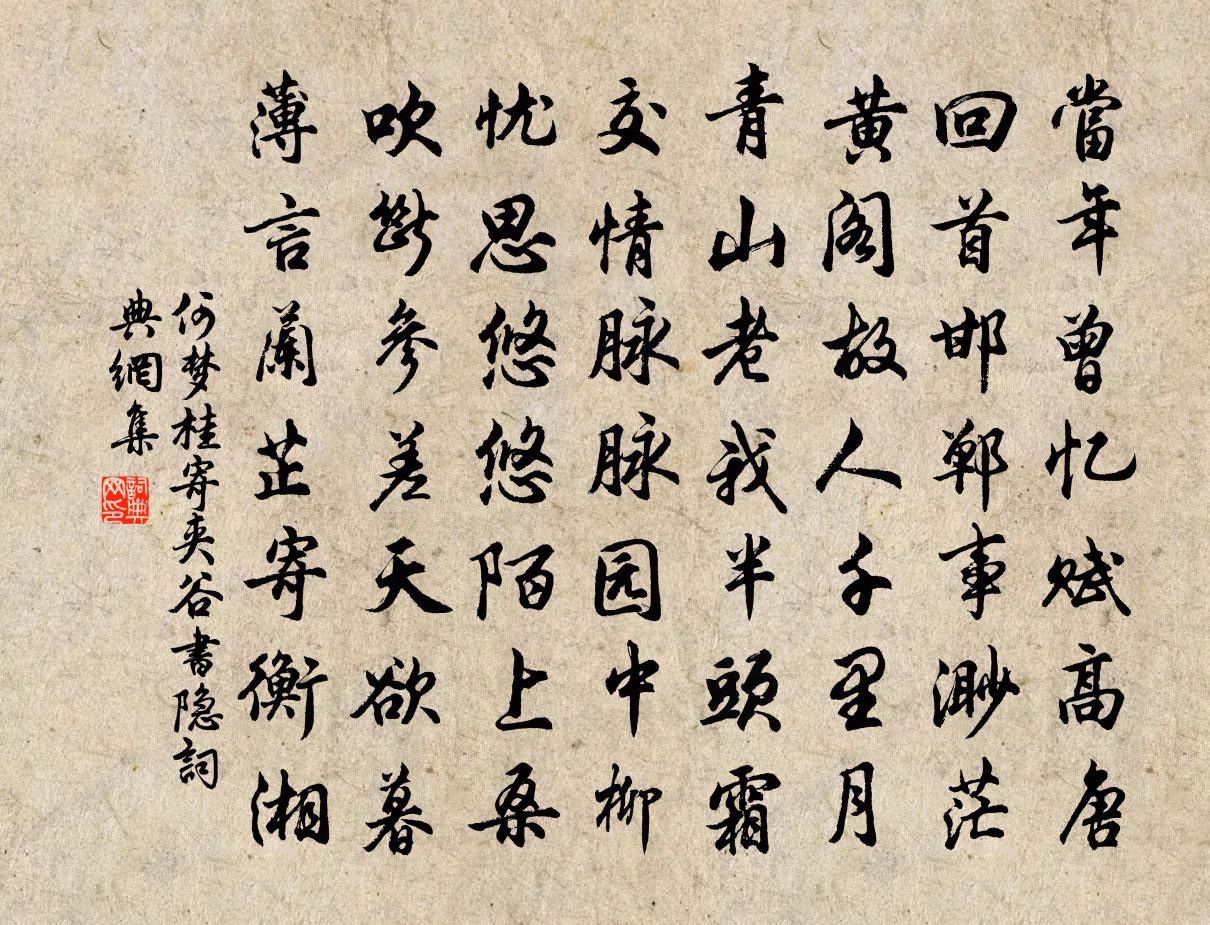 當年曾忆赋高唐
回首邯郸事渺茫
黄阁故人千里月
青山老我半頭霜
交情脉脉园中柳
忧思悠悠陌上桑
吹断参差天欲暮
薄言蘭芷寄衡湘
何梦桂寄夹谷書隐詞
典網集
詞典网印